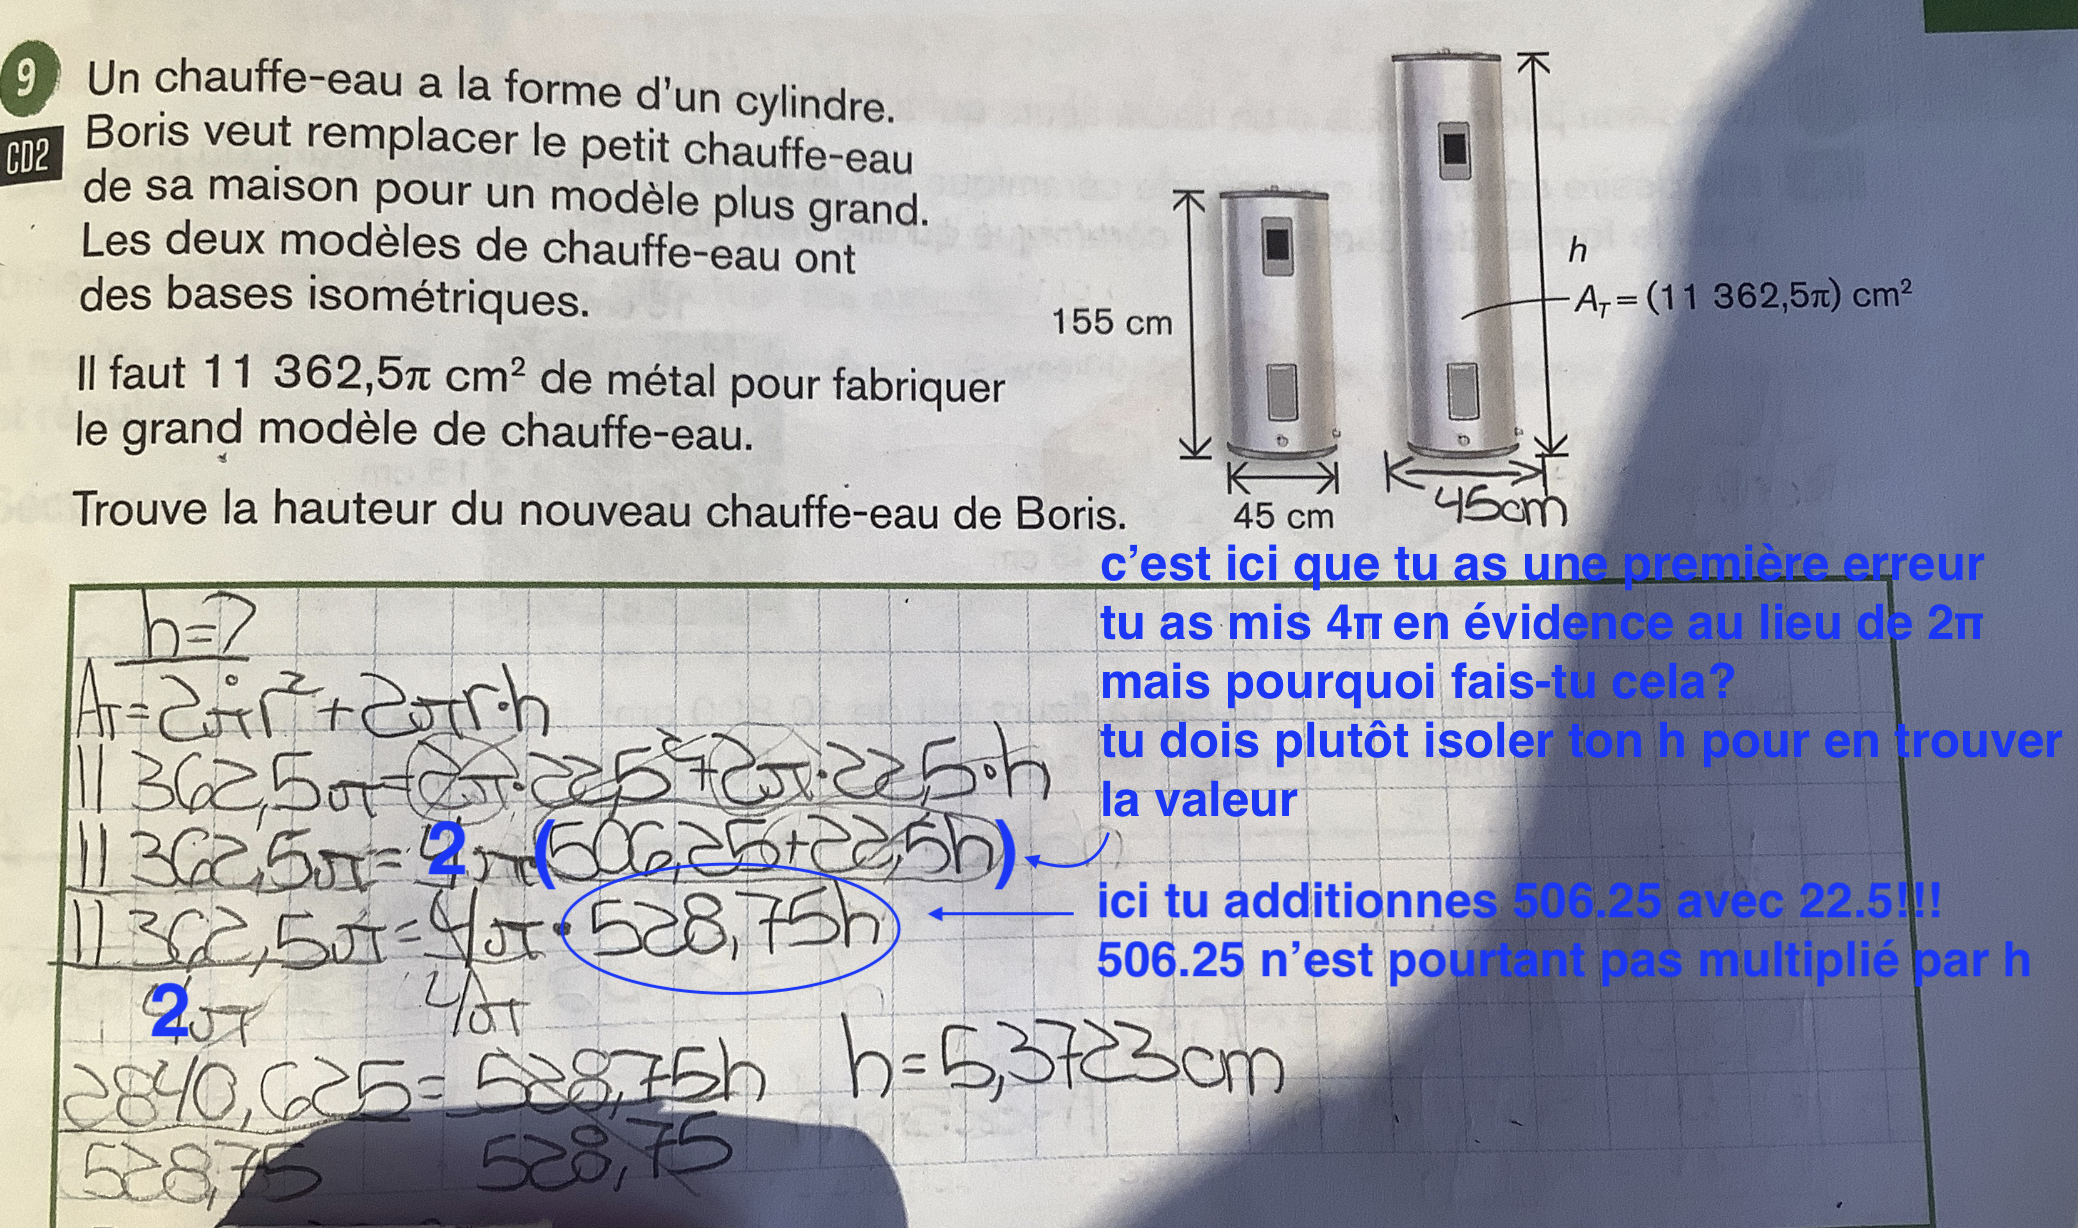 9 Un chauffe-eau a la forme d'un cylindre.
CD2 Boris veut remplacer le petit chauffe-eau
de sa maison pour un modèle plus grand.
Les deux modèles de chauffe-eau ont
des bases isométriques.
Il faut 11 362,5π cm² de métal pour fabriquer
le grand modèle de chauffe-eau.
Trouve la hauteur du nouveau chauffe-eau de Boris.
155 cm
45 cm
h
A_T = (11 362,5π) cm²
45cm
c'est ici que tu as une première erreur
tu as mis 4π en évidence au lieu de 2π
mais pourquoi fais-tu cela?
tu dois plutôt isoler ton h pour en trouver
la valeur
ici tu additionnes 506.25 avec 22.5!!!
506.25 n'est pourtant pas multiplié par h
h=?
A_T=2πr²+2πr·h
11 362,5π=2π·22,5²+2π·22,5·h
11 362,5π= 2π(506,25+22,5h)
11 362,5π=4π·528,75h
2π 4π
2840,625=528,75h
528,75 528,75
h=5,3723cm